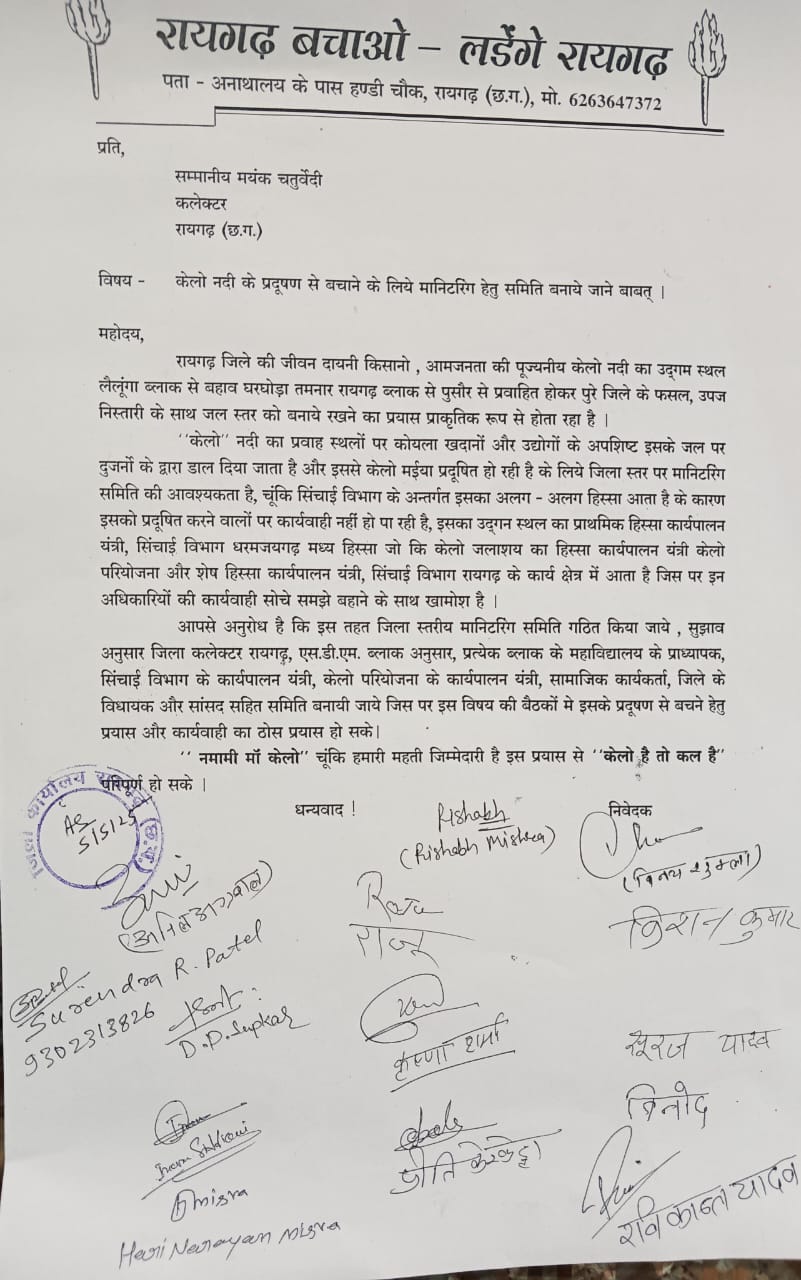 रायगढ़ बचाओ – लडेंगे रायगढ़
पता - अनाथालय के पास हण्डी चौक, रायगढ़ (छ.ग.), मो. 6263647372
प्रति,
सम्मानीय मयंक चतुर्वेदी
कलेक्टर
रायगढ़ (छ.ग.)
विषय - केलो नदी के प्रदूषण से बचाने के लिये मानिटरिंग हेतु समिति बनाये जाने बाबत् |
महोदय,
रायगढ़ जिले की जीवन दायनी किसानो , आमजनता की पूज्यनीय केलो नदी का उद्गम स्थल
लैलूंगा ब्लाक से बहाव घरघोड़ा तमनार रायगढ़ ब्लाक से पुसौर से प्रवाहित होकर पुरे जिले के फसल, उपज
निस्तारी के साथ जल स्तर को बनाये रखने का प्रयास प्राकृतिक रूप से होता रहा है |
''केलो'' नदी का प्रवाह स्थलों पर कोयला खदानों और उद्योगों के अपशिष्ट इसके जल पर
दुजर्नो के द्वारा डाल दिया जाता है और इससे केलो मईया प्रदूषित हो रही है के लिये जिला स्तर पर मानिटरिंग
समिति की आवश्यकता है, चूंकि सिंचाई विभाग के अन्तर्गत इसका अलग - अलग हिस्सा आता है के कारण
इसको प्रदूषित करने वालों पर कार्यवाही नहीं हो पा रही है, इसका उद्गन स्थल का प्राथमिक हिस्सा कार्यपालन
यंत्री, सिंचाई विभाग धरमजयगढ़ मध्य हिस्सा जो कि केलो जलाशय का हिस्सा कार्यपालन यंत्री केलो
परियोजना और शेष हिस्सा कार्यपालन यंत्री, सिंचाई विभाग रायगढ़ के कार्य क्षेत्र में आता है जिस पर इन
अधिकारियों की कार्यवाही सोचे समझे बहाने के साथ खामोश है |
आपसे अनुरोध है कि इस तहत जिला स्तरीय मानिटरिंग समिति गठित किया जाये , सुझाव
अनुसार जिला कलेक्टर रायगढ़, एस.डी.एम. ब्लाक अनुसार, प्रत्येक ब्लाक के महाविद्यालय के प्राध्यापक,
सिंचाई विभाग के कार्यपालन यंत्री, केलो परियोजना के कार्यपालन यंत्री, सामाजिक कार्यकर्ता, जिले के
विधायक और सांसद सहित समिति बनायी जाये जिस पर इस विषय की बैठकों मे इसके प्रदूषण से बचने हेतु
प्रयास और कार्यवाही का ठोस प्रयास हो सके|
'' नमामी माँ केलो'' चूंकि हमारी महती जिम्मेदारी है इस प्रयास से ''केलो है तो कल है''
परिपूर्ण हो सके |
धन्यवाद !
निवेदक
5/5/25
Rishabh
(Rishabh Mishra)
(विनय शुक्ला)
(अनिल अग्रवाल)
Raju
राजू
किशन कुमार
Surendra R. Patel
9302313826
D.D. Supkar
कृष्णा शर्मा
सूरज यादव
विनोद
प्रीति केरकेट्टा
रविकान्त यादव
Misra
Hari Narayan Misra